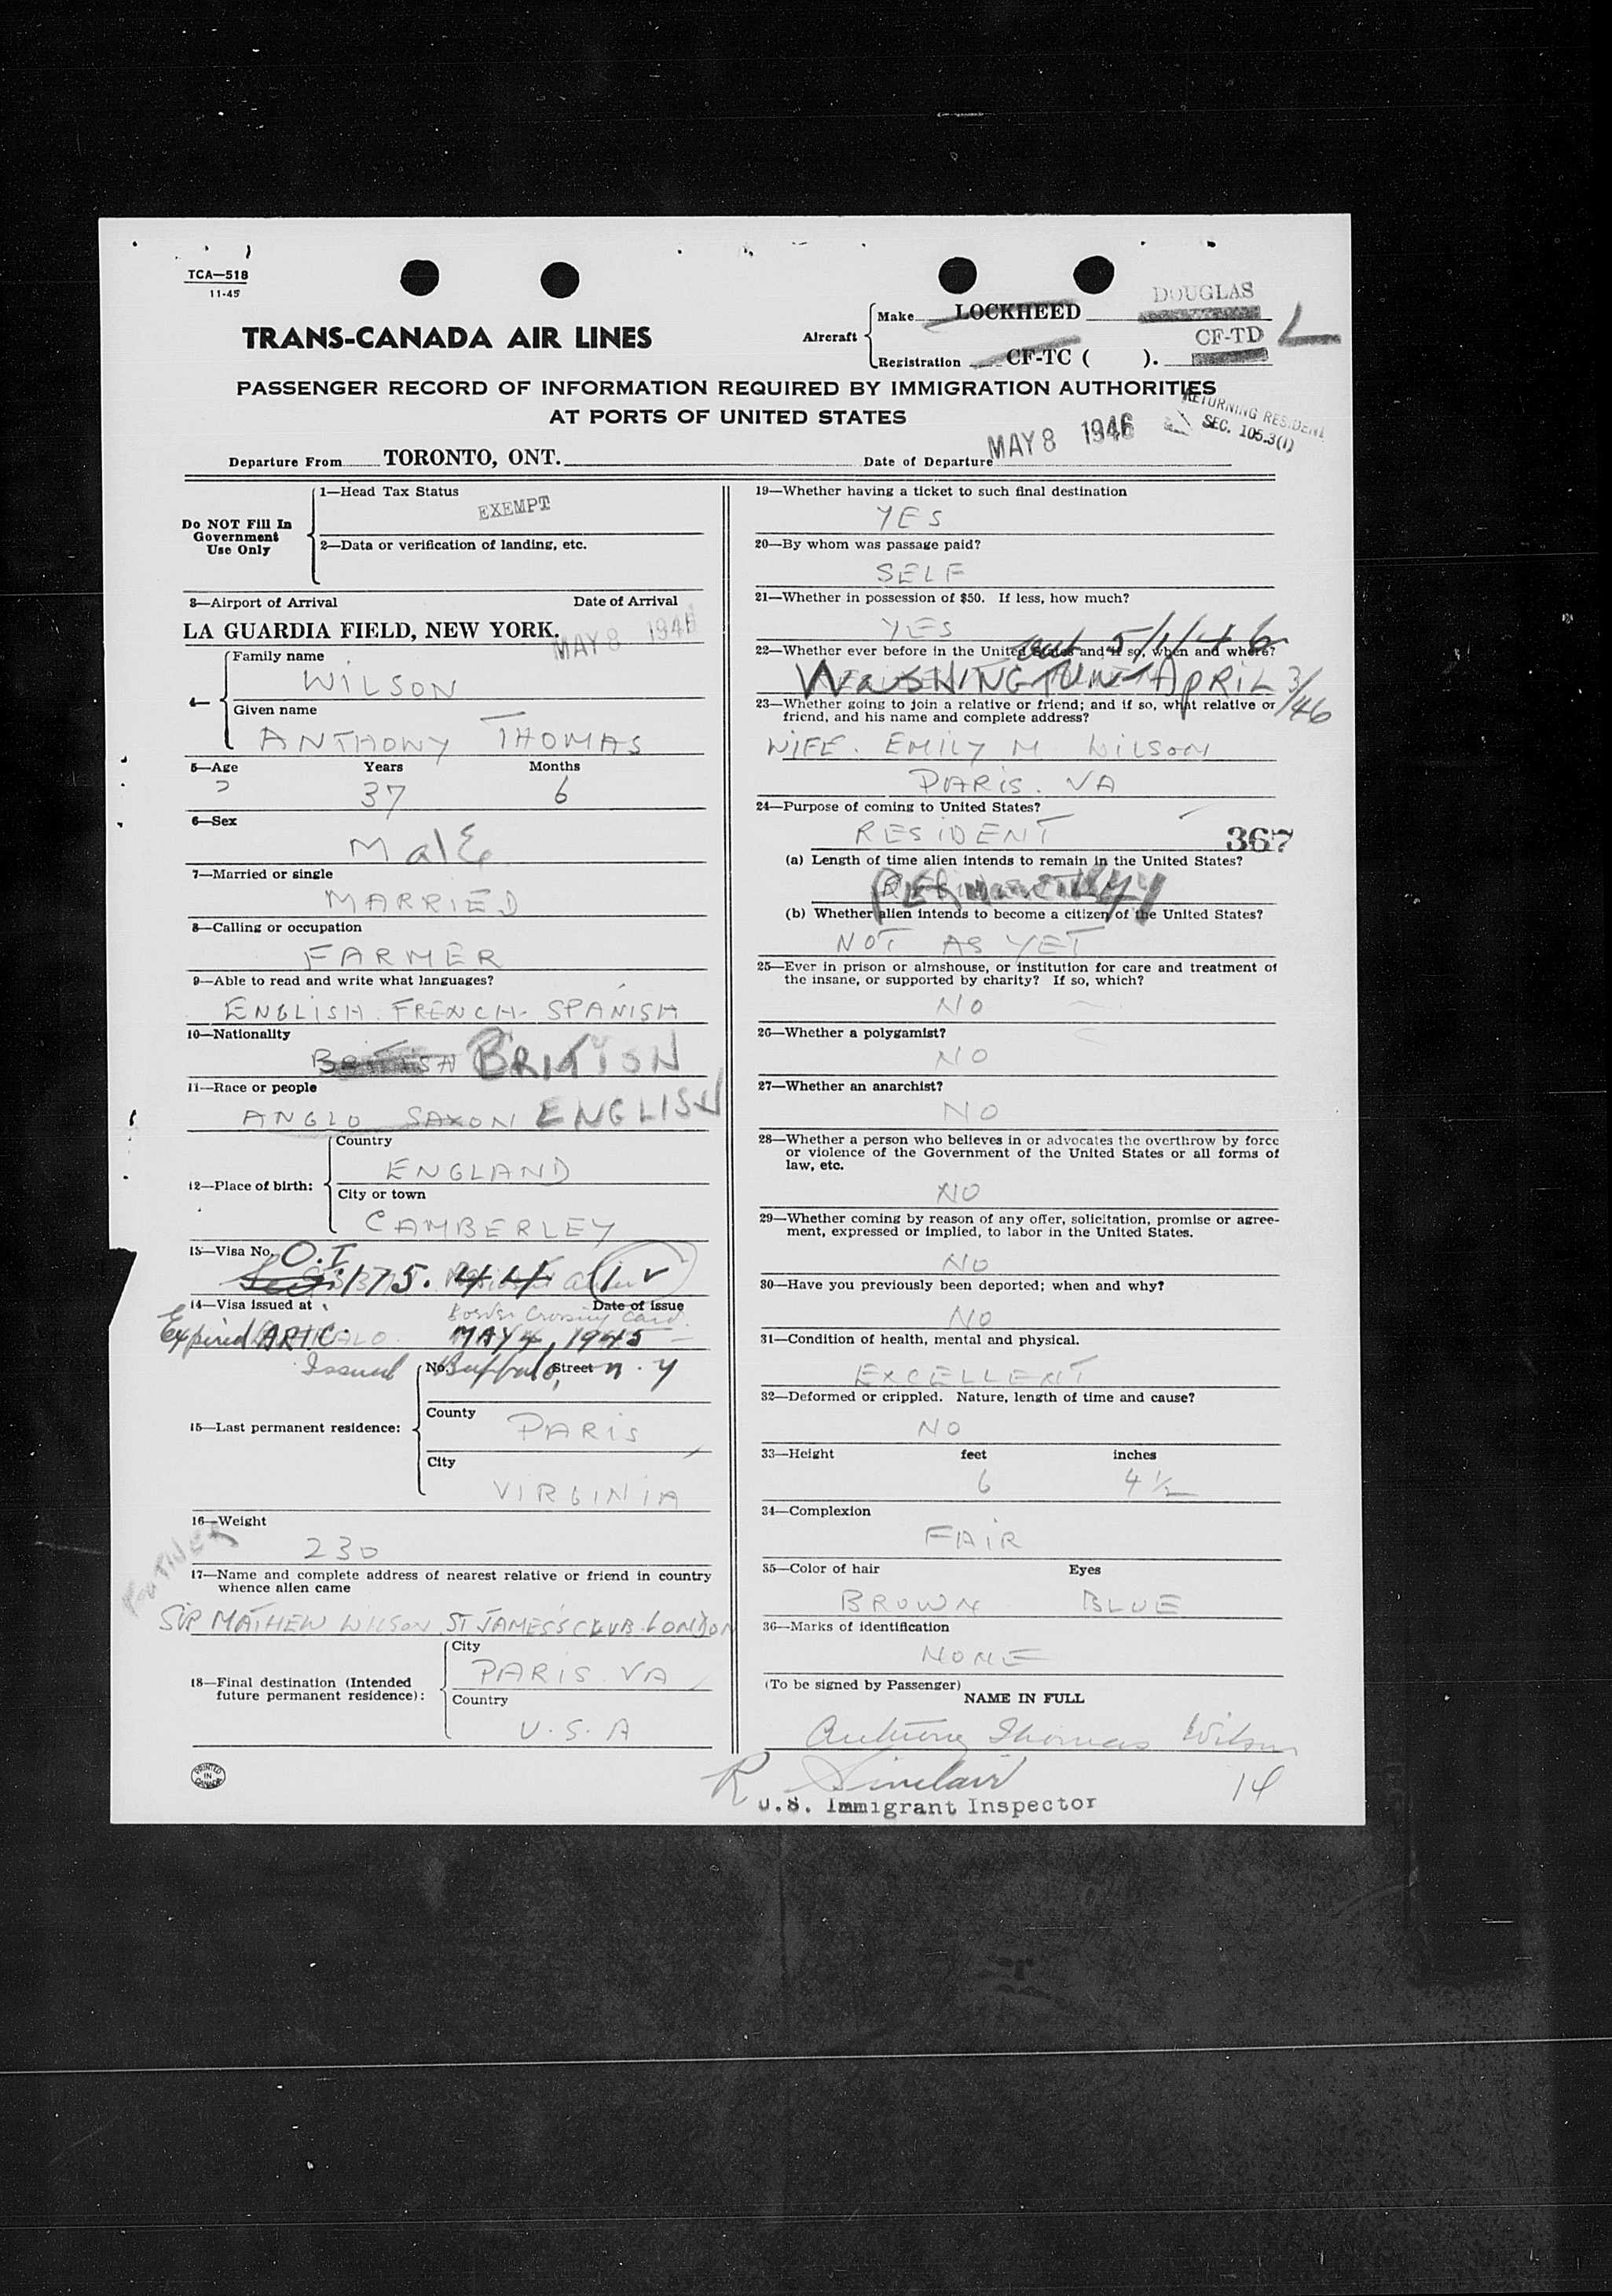 TCA—518
11-45
TRANS-CANADA AIR LINES
Aircraft
Make LOCKHEED DOUGLAS
Registration CF-TC ( ). CF-TD L
PASSENGER RECORD OF INFORMATION REQUIRED BY IMMIGRATION AUTHORITIES
AT PORTS OF UNITED STATES
RETURNING RESIDENT
SEC. 105.3(1)
Departure From TORONTO, ONT. Date of Departure MAY 8 1946
Do NOT Fill In
Government
Use Only
1—Head Tax Status
EXEMPT
2—Data or verification of landing, etc.
3—Airport of Arrival Date of Arrival
LA GUARDIA FIELD, NEW YORK. MAY 8 1946
4—
Family name
WILSON
Given name
ANTHONY THOMAS
5—Age Years Months
37 6
6—Sex
MalE
7—Married or single
MARRIED
8—Calling or occupation
FARMER
9—Able to read and write what languages?
ENGLISH. FRENCH. SPANISH
10—Nationality
BRITISH BRITTON
11—Race or people
ANGLO SAXON ENGLISH
12—Place of birth:
Country
ENGLAND
City or town
CAMBERLEY
13—Visa No. O.I.
175.
14—Visa issued at Date of issue
Border Crossing Card.
Expired ARIC. MAY 4, 1945
Issued Buffalo, n.y
No. Street
15—Last permanent residence:
County
PARIS
City
VIRGINIA
16—Weight
230
FATHER
17—Name and complete address of nearest relative or friend in country
whence alien came
SIR MATHEW WILSON ST JAMES'S CLUB. LONDON
18—Final destination (Intended
future permanent residence):
City
PARIS. VA
Country
U.S.A
PRINTED
IN
CANADA
19—Whether having a ticket to such final destination
YES
20—By whom was passage paid?
SELF
21—Whether in possession of $50. If less, how much?
YES
out 5/1/46
22—Whether ever before in the United States and if so, when and where?
WASHINGTON APRIL 3/46
23—Whether going to join a relative or friend; and if so, what relative or
friend, and his name and complete address?
WIFE. EMILY M WILSON
PARIS. VA
24—Purpose of coming to United States?
RESIDENT
367
(a) Length of time alien intends to remain in the United States?
(b) Whether alien intends to become a citizen of the United States?
NOT AS YET
25—Ever in prison or almshouse, or institution for care and treatment of
the insane, or supported by charity? If so, which?
NO
26—Whether a polygamist?
NO
27—Whether an anarchist?
NO
28—Whether a person who believes in or advocates the overthrow by force
or violence of the Government of the United States or all forms of
law, etc.
NO
29—Whether coming by reason of any offer, solicitation, promise or agree-
ment, expressed or implied, to labor in the United States.
NO
30—Have you previously been deported; when and why?
NO
31—Condition of health, mental and physical.
EXCELLENT
32—Deformed or crippled. Nature, length of time and cause?
NO
33—Height feet inches
6 4 ½
34—Complexion
FAIR
35—Color of hair Eyes
BROWN BLUE
36—Marks of identification
NONE
(To be signed by Passenger)
NAME IN FULL
Anthony Thomas Wilson
R Sinclair 14
U.S. Immigrant Inspector